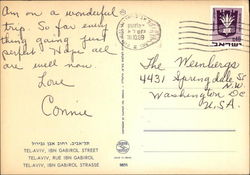 Am on a wonderful
trip. So far every
thing going just
perfect. Hope all
are well now.
Love
Connie
The Weinbergs
4431 Springdale St
N.W.
Washington DC
U.S.A.
ישראל
תל-אביב, רחוב אבן גבירול
TEL-AVIV, IBN GABIROL STREET
TEL-AVIV, RUE IBN GABIROL
TEL-AVIV, IBN GABIROL STRASSE